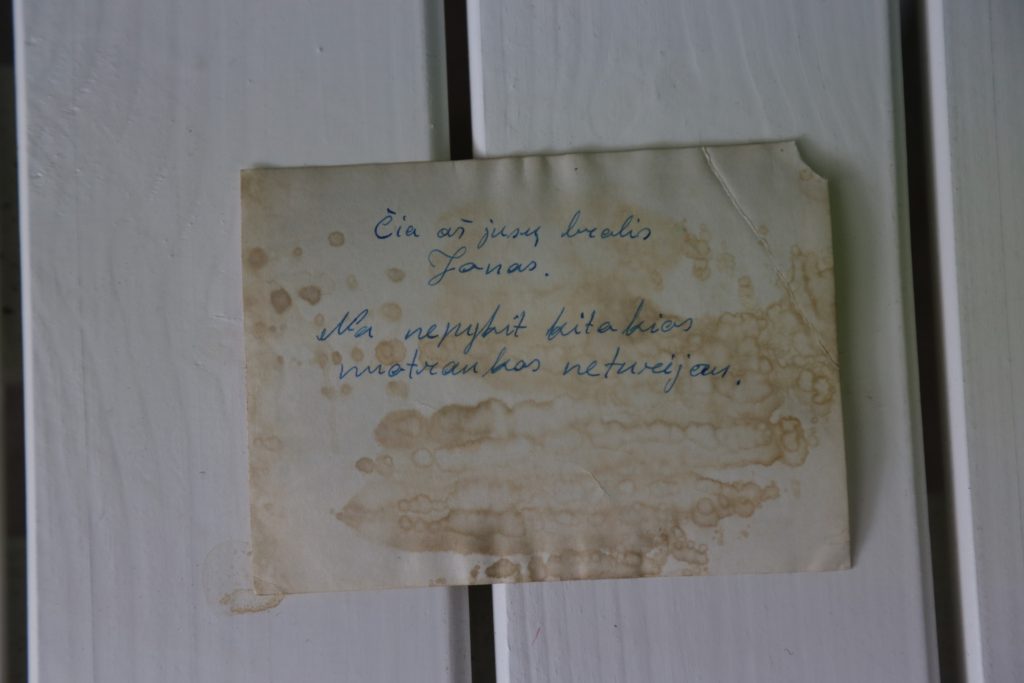 Čia aš jusų bralis
Jonas.
Na nepykit kitokios
nuotraukos neturėjau.